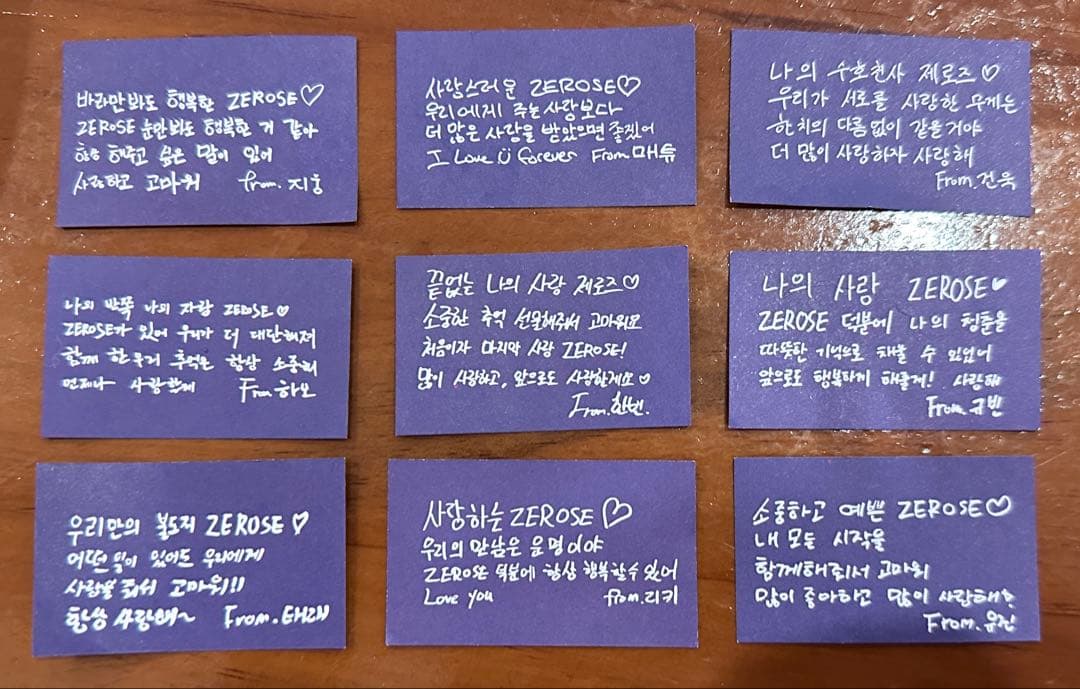 바라만봐도 행복한 ZEROSE♡
ZEROSE 눈만봐도 행복한 거 같아
해주고 싶은 말이 있어
사랑하고 고마워 from.지웅
사랑스러운 ZEROSE♡
우리에게 주는 사랑보다
더 많은 사랑을 받았으면 좋겠어
I Love U forever From.매튜
나의 수호천사 제로즈♡
우리가 서로를 사랑한 무게는
한치의 다름없이 같을거야
더 많이 사랑하자 사랑해
From.건욱
나의 반쪽 나의 자랑 ZEROSE♡
ZEROSE가 있어 우리가 더 대단해져
함께 한 우리 추억은 항상 소중히
언제나 사랑할게 From.하오
끝없는 나의 사랑 제로즈♡
소중한 추억 선물해줘서 고마워모
처음이자 마지막 사랑 ZEROSE!
많이 사랑하고, 앞으로도 사랑한게소♡
From.한빈.
나의 사랑 ZEROSE♥
ZEROSE 덕분에 나의 청춘을
따뜻한 기억으로 채울 수 있었어
앞으로도 행복하게 해줄게! 사랑해
From.규빈
우리만의 복도지 ZEROSE♡
어떤 일이 있어도 우리에게
사랑을 줘서 고마워!!
항상 사랑해~ From.태래
사랑하는 ZEROSE♡
우리의 만남은 운명이야
ZEROSE 덕분에 항상 행복할수있어
Love you from.리키
소중하고 예쁜 ZEROSE♡
내 모든 시작을
함께해줘서 고마워
많이 좋아하고 많이 사랑해?
From.유진